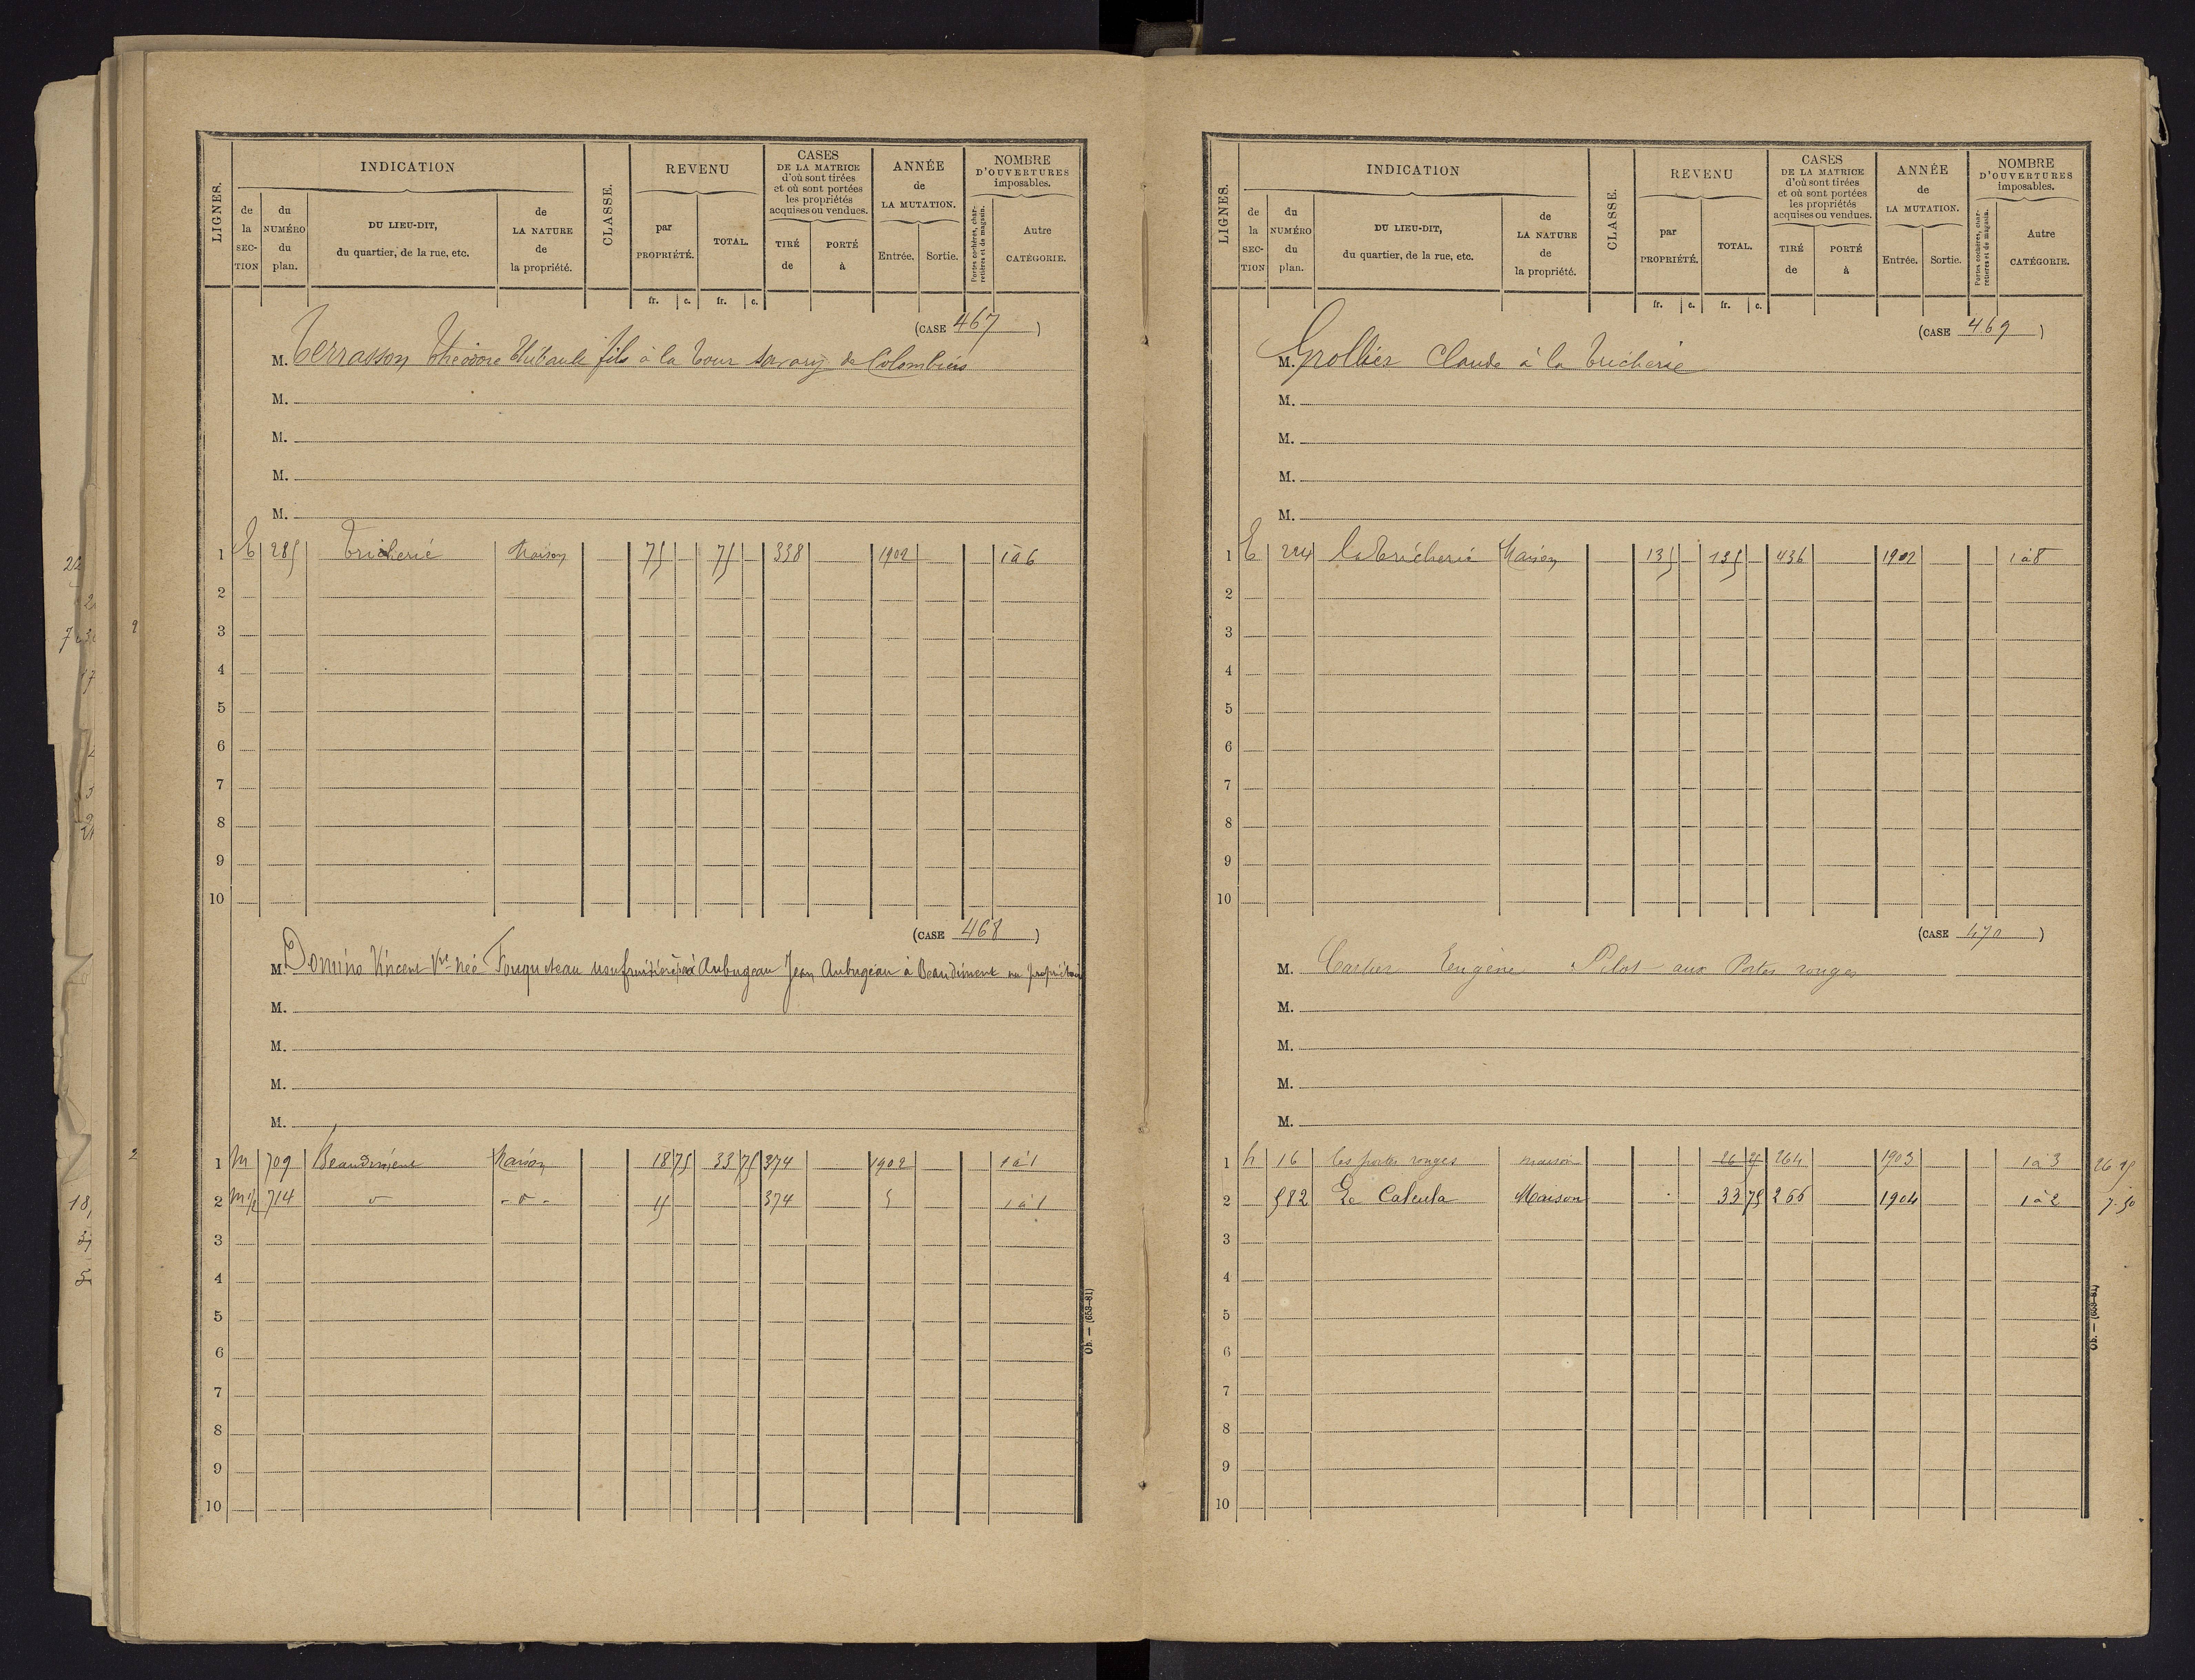 LIGNES.
INDICATION
de la SECTION
du NUMÉRO du plan.
DU LIEU-DIT, du quartier, de la rue, etc.
de LA NATURE de la propriété.
CLASSE.
REVENU
par PROPRIÉTÉ.
TOTAL.
CASES DE LA MATRICE d'où sont tirées et où sont portées les propriétés acquises ou vendues.
TIRÉ de
PORTÉ à
ANNÉE de LA MUTATION.
Entrée.
Sortie.
NOMBRE D'OUVERTURES imposables.
Portes cochères, charretières et de magasin.
Autre CATÉGORIE.
fr. c. fr. c.
(CASE 467)
M. Terrasson Théodore Thibault fils à la Tour Savary de Colombiers
M.
M.
M.
M.
1 E 285 Tricherie Maison 75 75 338 1902 1 à 6
2
3
4
5
6
7
8
9
10
(CASE 468)
M. Domino Vincent Vve née Fouqueteau usufruitière Aubugeau Jean Aubugeau à Beaudiment nu propriétaire
M.
M.
M.
M.
1 M 709 Beaudiment Maison 18 75 33 75 374 1902 1 à 1
2 M 1/2 714 d° - d° - 15 374 5 1 à 1
3
4
5
6
7
8
9
10
Ob. — (653-81)
LIGNES.
INDICATION
de la SECTION
du NUMÉRO du plan.
DU LIEU-DIT, du quartier, de la rue, etc.
de LA NATURE de la propriété.
CLASSE.
REVENU
par PROPRIÉTÉ.
TOTAL.
CASES DE LA MATRICE d'où sont tirées et où sont portées les propriétés acquises ou vendues.
TIRÉ de
PORTÉ à
ANNÉE de LA MUTATION.
Entrée.
Sortie.
NOMBRE D'OUVERTURES imposables.
Portes cochères, charretières et de magasin.
Autre CATÉGORIE.
fr. c. fr. c.
(CASE 469)
M. Grollier Claude à la Tricherie
M.
M.
M.
M.
1 E 224 La Tricherie Maison 135 135 436 1902 1 à 8
2
3
4
5
6
7
8
9
10
(CASE 470)
M. Cartier Eugène Pilot aux Portes rouges
M.
M.
M.
M.
1 h 16 les portes rouges maison 26 25 264 1903 1 à 3 26 25
2 582 Le Calcula Maison 33 75 266 1904 1 à 2 7.50
3
4
5
6
7
8
9
10
Ob. — (653-81)